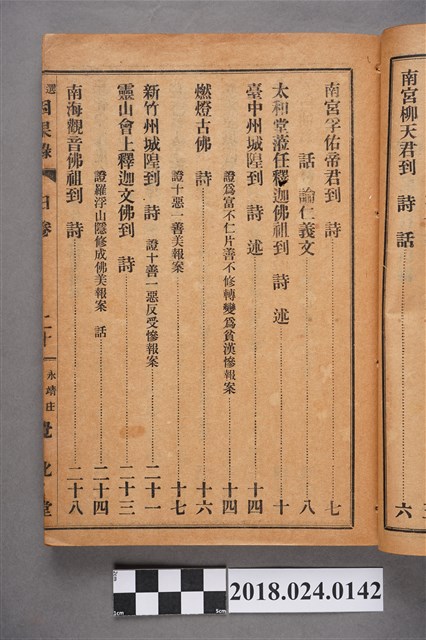 南宮柳天君到 詩 話 六
南宮孚佑帝君到 詩 七
話 論仁義文 八
太和堂蒞任釋迦佛祖到 詩 述 十
臺中州城隍到 詩 述 十四
證爲富不仁片善不修轉變爲貧漢慘報案 十四
燃燈古佛 詩 十六
證十惡一善美報案 十七
新竹州城隍到 詩 證十善一惡反受慘報案 二十一
靈山會上釋迦文佛到 詩 二十三
證羅浮山隱修成佛美報案 話 二十四
南海觀音佛祖到 詩 二十八
選 因果錄 四卷 二十一 永靖庄 覺化堂
2cm
1cm
5cm
2018.024.0142